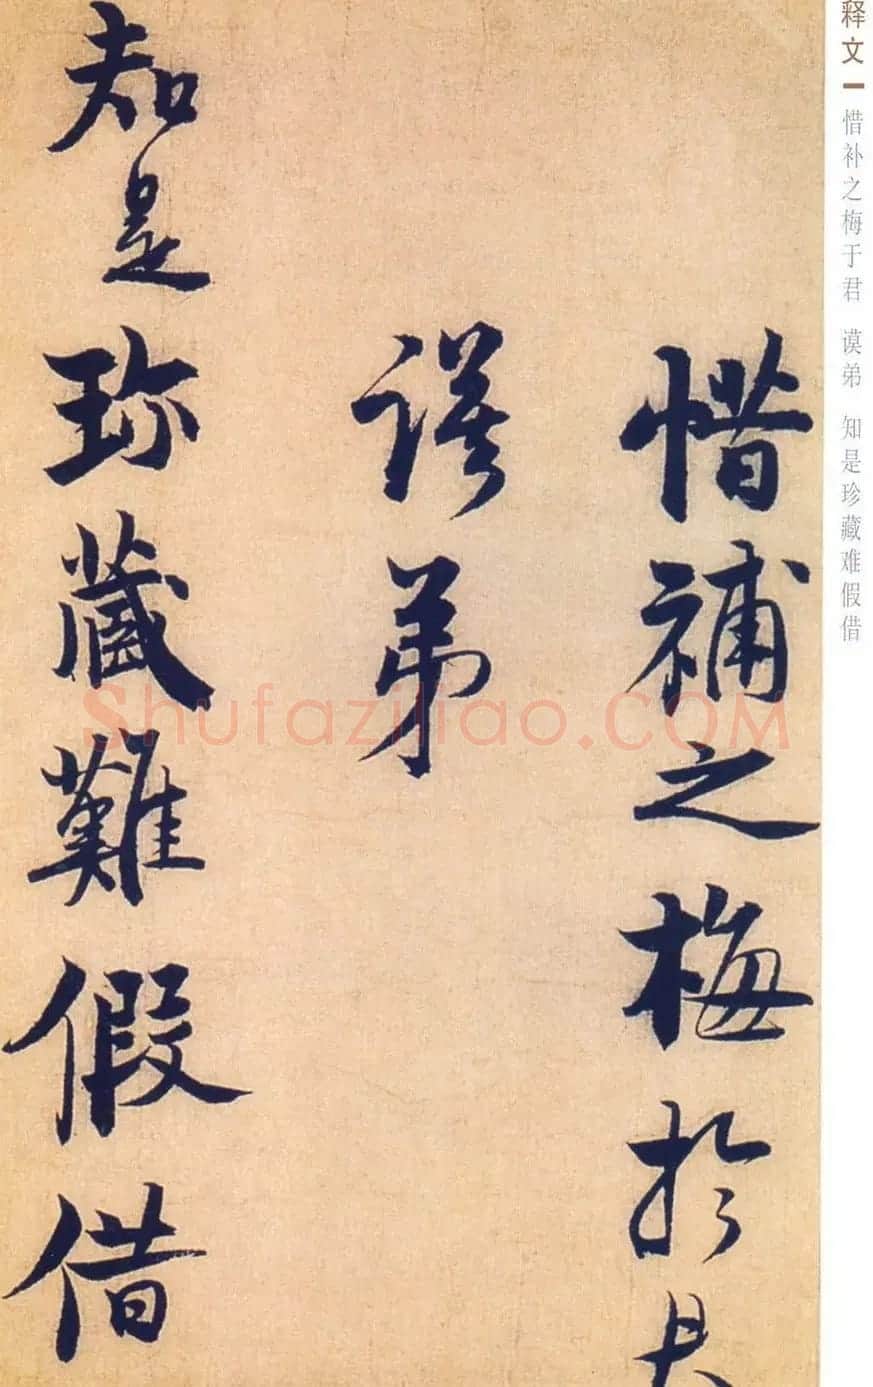 释文 惜补之梅于君 谟弟 知是珍藏难假借
惜補之梅於
謨弟
知是珎藏難假借
Shufaziliao.COM